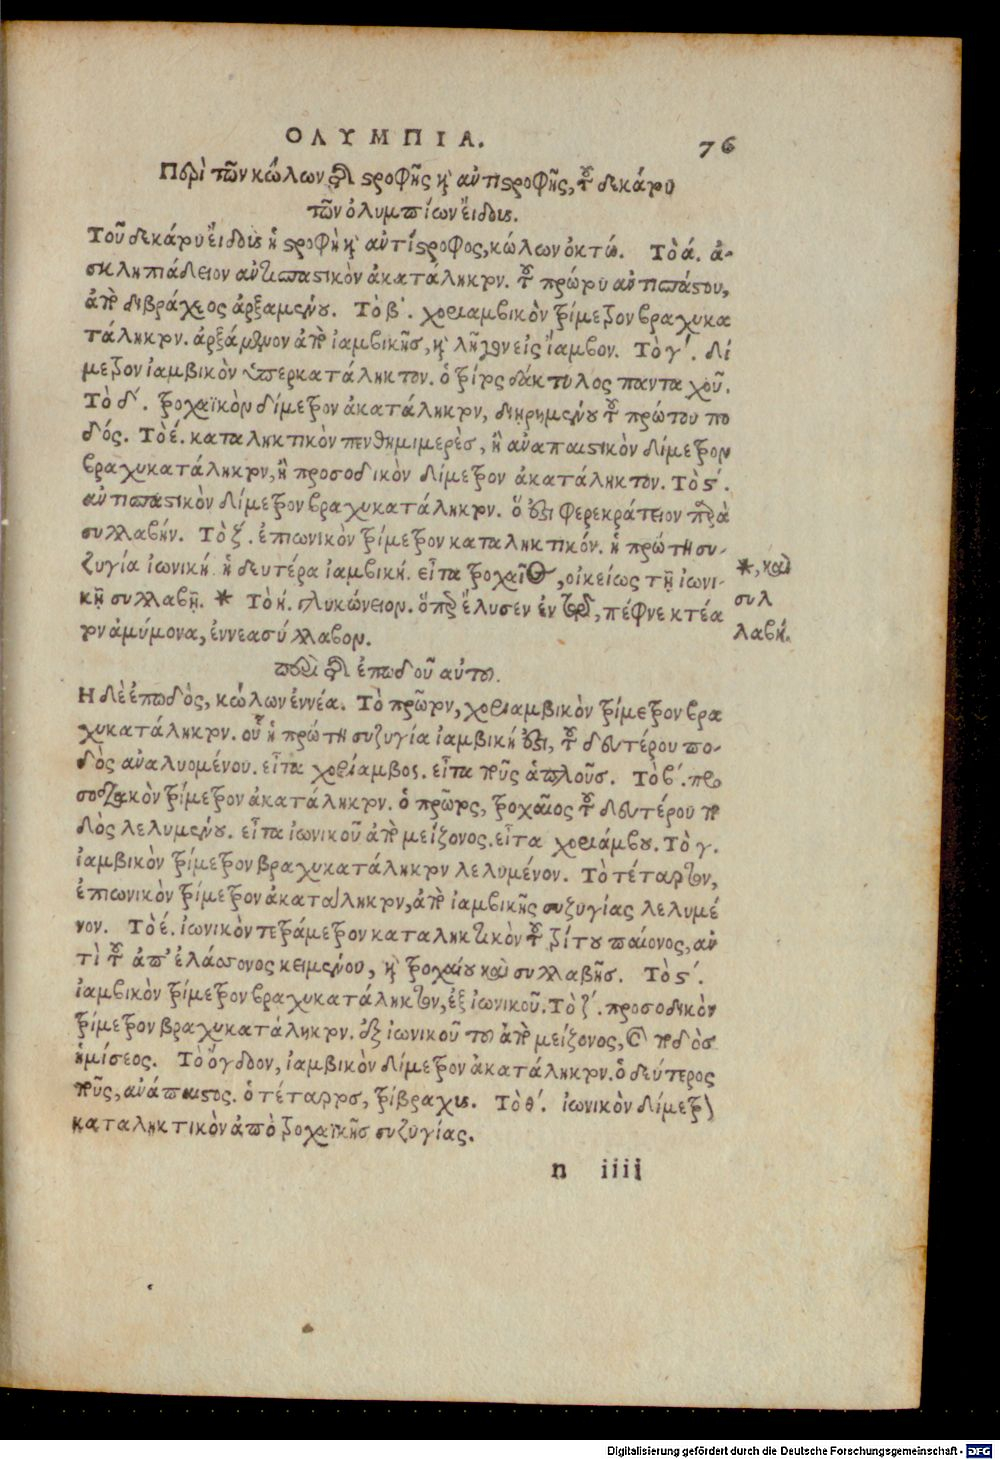 ΟΛΥΜΠΙΑ. 76
Περὶ τῶν κώλων τῆς στροφῆς καὶ ἀντιστροφῆς, τοῦ δεκάτου
τῶν ὀλυμπίων εἴδους.
Τοῦ δεκάτου εἴδους ἡ στροφὴ καὶ ἀντίστροφος, κώλων ὀκτώ. Τὸ ά. ἀ-
σκληπιάδειον ἀντισπαστικὸν ἀκατάληκτον. τοῦ πρώτου ἀντισπάστου,
ἀπὸ διβράχεος ἀρξαμένου. Τὸ β΄. χοριαμβικὸν τρίμετρον βραχυκα
τάληκτον. ἀρξάμενον ἀπὸ ἰαμβικῆς, καὶ λῆγον εἰς ἴαμβον. Τὸ γ΄. δί
μετρον ἰαμβικὸν ὑπερκατάληκτον. ὁ τρίτος δάκτυλος πανταχοῦ.
Τὸ δ΄. τροχαϊκὸν δίμετρον ἀκατάληκτον, διῃρημένου τοῦ πρώτου πο
δός. Τὸ έ. καταληκτικὸν πενθημιμερὲς, ἢ ἀναπαιστικὸν δίμετρον
βραχυκατάληκτον, ἢ προσοδικὸν δίμετρον ἀκατάληκτον. Τὸ ϛ΄.
ἀντισπαστικὸν δίμετρον βραχυκατάληκτον. ὅ ἐστι φερεκράτειον παρὰ
συλλαβήν. Τὸ ζ. ἐπιωνικὸν τρίμετρον καταληκτικόν. ἡ πρώτη συ-
ζυγία ἰωνική. ἡ δευτέρα ἰαμβική. εἶτα τροχαῖος, οἰκείως τῇ ἰωνι-
κῇ συλλαβῇ. * Τὸ ή. γλυκώνειον. ὅπερ ἔλυσεν ἐν τῷ, πέφνε κτέα
τον ἀμύμονα, ἐννεασύλλαβον.
*, καὶ
συλ
λαβή.
περὶ τῆς ἐπωδοῦ αὐτοῦ.
Η δὲ ἐπωδὸς, κώλων ἐννέα. Τὸ πρῶτον, χοριαμβικὸν τρίμετρον βρα
χυκατάληκτον. οὗ ἡ πρώτη συζυγία ἰαμβική ἐστι, τοῦ δευτέρου πο-
δὸς ἀναλυομένου. εἶτα χορίαμβος. εἶτα ποῦς ἁπλοῦς. Τὸ β΄. προ
σοδιακὸν τρίμετρον ἀκατάληκτον. ὁ πρῶτος, τροχαῖος τοῦ δευτέρου πο
δὸς λελυμένου. εἶτα ἰωνικοῦ ἀπὸ μείζονος. εἶτα χοριάμβου. Τὸ γ.
ἰαμβικὸν τρίμετρον βραχυκατάληκτον λελυμένον. Τὸ τέταρτον,
ἐπιωνικὸν τρίμετρον ἀκατάληκτον, ἀπὸ ἰαμβικῆς συζυγίας λελυμέ
νον. Τὸ έ. ἰωνικὸν τετράμετρον καταληκτικὸν τοῦ τρίτου παίονος, ἀν
τὶ τοῦ ἀπ' ἐλάσσονος κειμένου, καὶ τροχαίου καὶ συλλαβῆς. Τὸ ϛ΄.
ἰαμβικὸν τρίμετρον βραχυκατάληκτον, ἐξ ἰωνικοῦ. Τὸ ζ΄. προσοδικὸν
τρίμετρον βραχυκατάληκτον. ἐξ ἰωνικοῦ τοῦ ἀπὸ μείζονος, καὶ ποδὸς
ἡμίσεος. Τὸ ὄγδοον, ἰαμβικὸν δίμετρον ἀκατάληκτον. ὁ δεύτερος
ποῦς, ἀνάπαιστος. ὁ τέταρτος, τρίβραχυς. Τὸ θ΄. ἰωνικὸν δίμετρον
καταληκτικὸν ἀπὸ τροχαϊκῆς συζυγίας.
n iiii
Digitalisierung gefördert durch die Deutsche Forschungsgemeinschaft - DFG